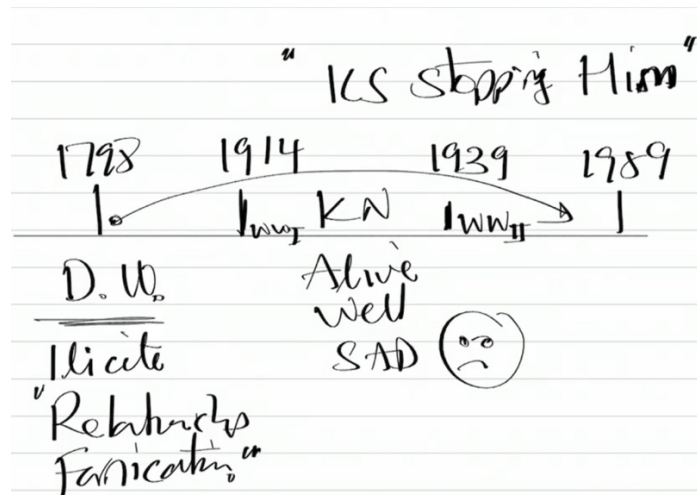 "KS Stopping Him"
1798 1914 1939 1989
WWI KN WWII
D.W. Alive
Well
Ilicite SAD
"Relationships
Fornication"